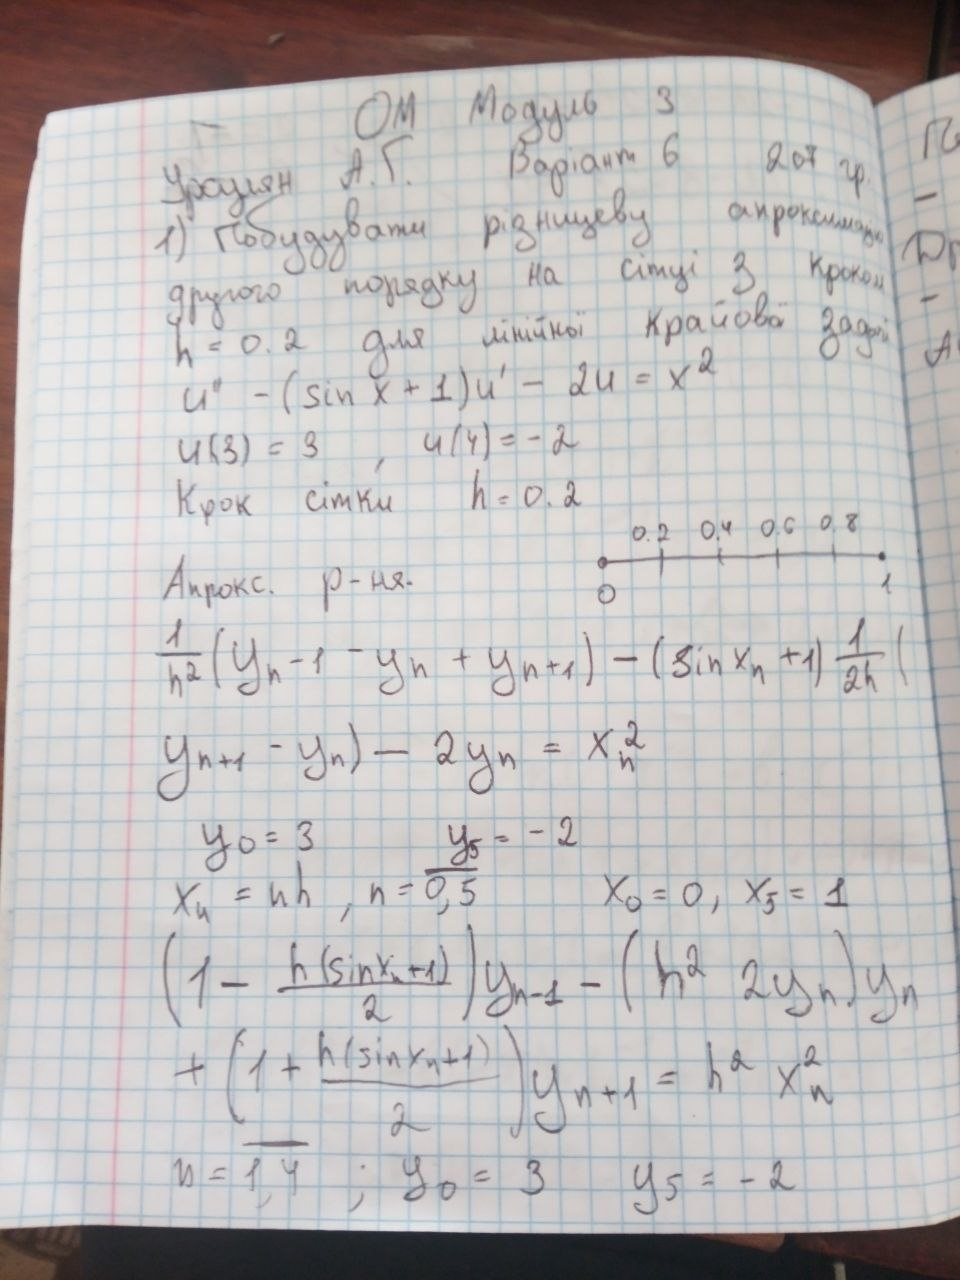 ОМ Модуль 3
А.Г. Варіант 6 207 гр.
1) Побудувати різницеву апроксимацію
другого порядку на сітці з кроком
h = 0.2 для лінійної крайової задачі
u'' - (sin x + 1)u' - 2u = x²
u(3) = 3 , u(4) = -2
Крок сітки h = 0.2
0.2 0,4 0,6 0,8
Апрокс. р-ня.
0 1
1/h² (yₙ-1 - yₙ + yₙ₊₁) - (sin xₙ + 1) 1/2h (
yₙ₊₁ - yₙ) - 2yₙ = xₙ²
y₀ = 3 y₅ = -2
xₙ = nh , n = 0,5 x₀ = 0, x₅ = 1
(1 - h(sin xₙ + 1)/2) yₙ₋₁ - (h² 2yₙ) yₙ
+ (1 + h(sin xₙ + 1)/2) yₙ₊₁ = h² xₙ²
n = 1,4 ; y₀ = 3 y₅ = -2